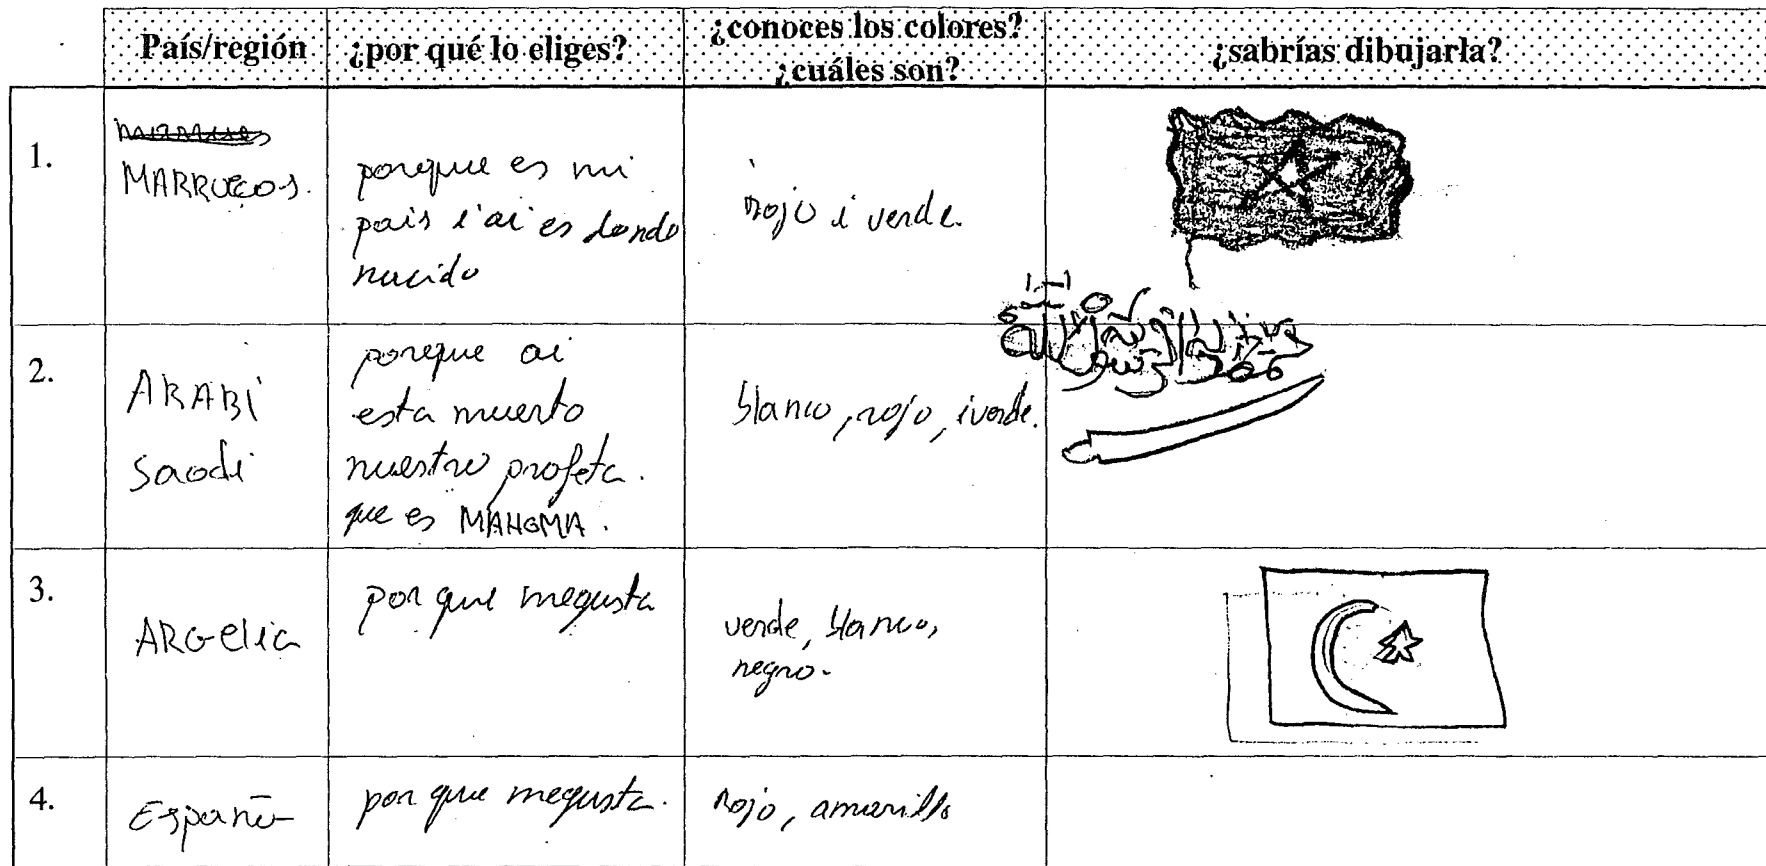 País/región ¿por qué lo eliges? ¿conoces los colores? ¿sabrías dibujarla?
¿cuáles son?
1.
MARRUECOS.
porque es mi
pais i ai es donde
nacido
rojo i verde.
2.
ARABI
Saodi
porque ai
esta muerto
nuestro profeta.
que es MAHOMA.
blanco, rojo, iverde.
3.
ARGelia
por que megusta
verde, blanco,
negro.
4.
España
por que megusta.
rojo, amarillo